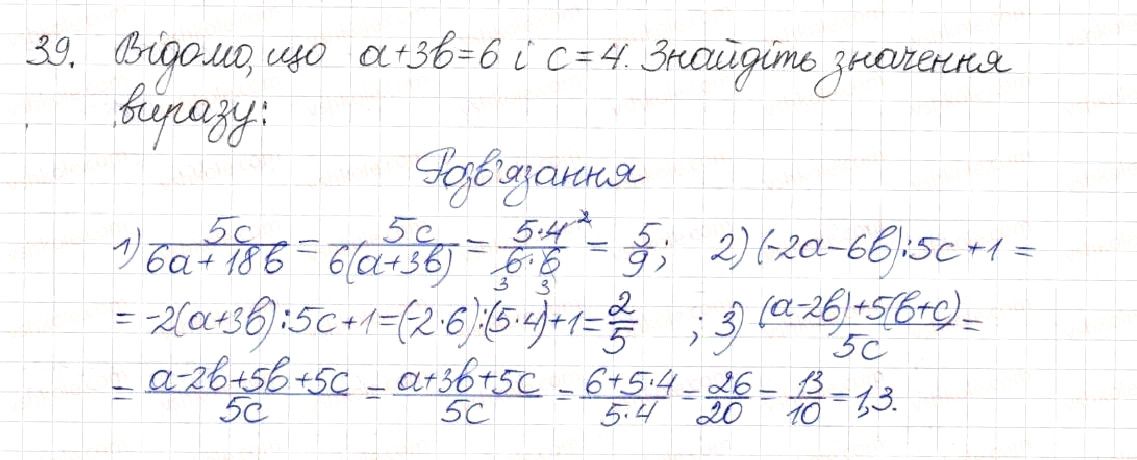 39. Відомо, що a+3b=6 і c=4. Знайдіть значення
виразу:
Розв'язання
1) 5c/(6a+18b) = 5c/(6(a+3b)) = (5·4)/(6·6) 2 3 3 = 5/9; 2) (-2a-6b):5c+1=
= -2(a+3b):5c+1=(-2·6):(5·4)+1= 2/5 ; 3) ((a-2b)+5(b+c))/5c =
= (a-2b+5b+5c)/5c = (a+3b+5c)/5c = (6+5·4)/(5·4) = 26/20 = 13/10 = 1,3.